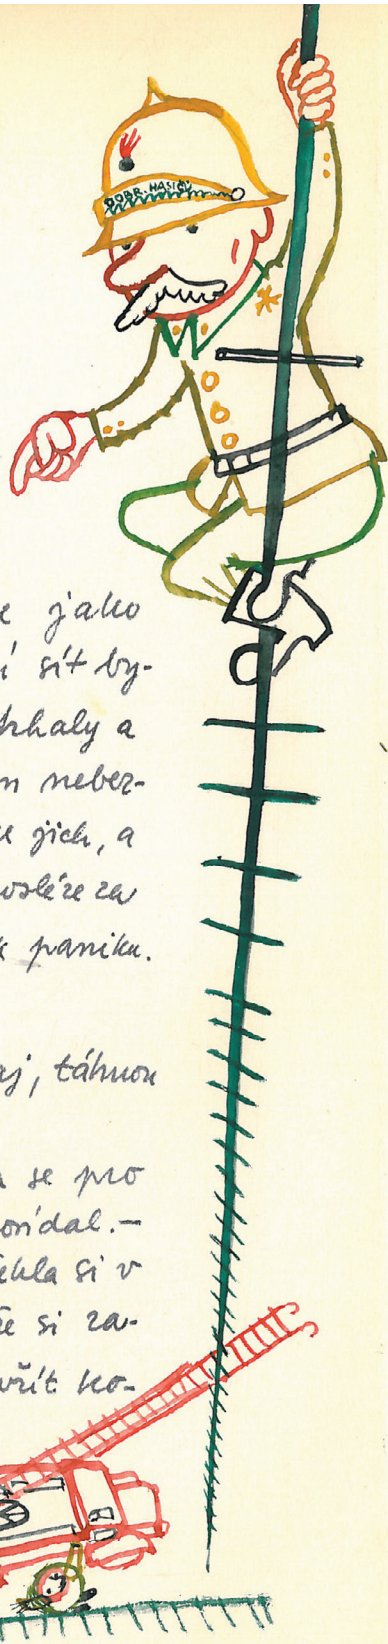 DOBR. HASIČŮ
e jako
í síť by-
trhaly a
m neber-
ke jich, a
posléze za
k paniku.
aj, táhnou
a se pro
ořídal.-
řekla si v
že si za-
vřít ko-